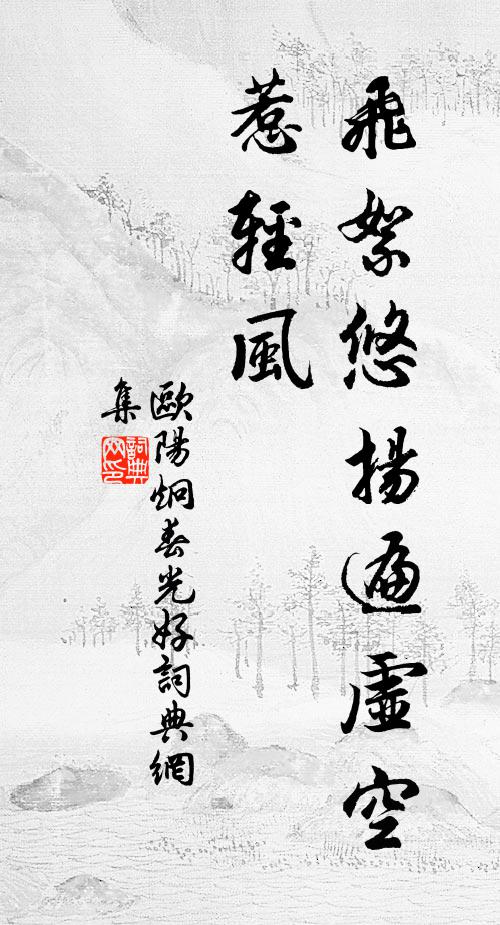 飛絮悠揚遍虛空
惹輕風
歐陽炯春光好詞典網
集
詞典网印